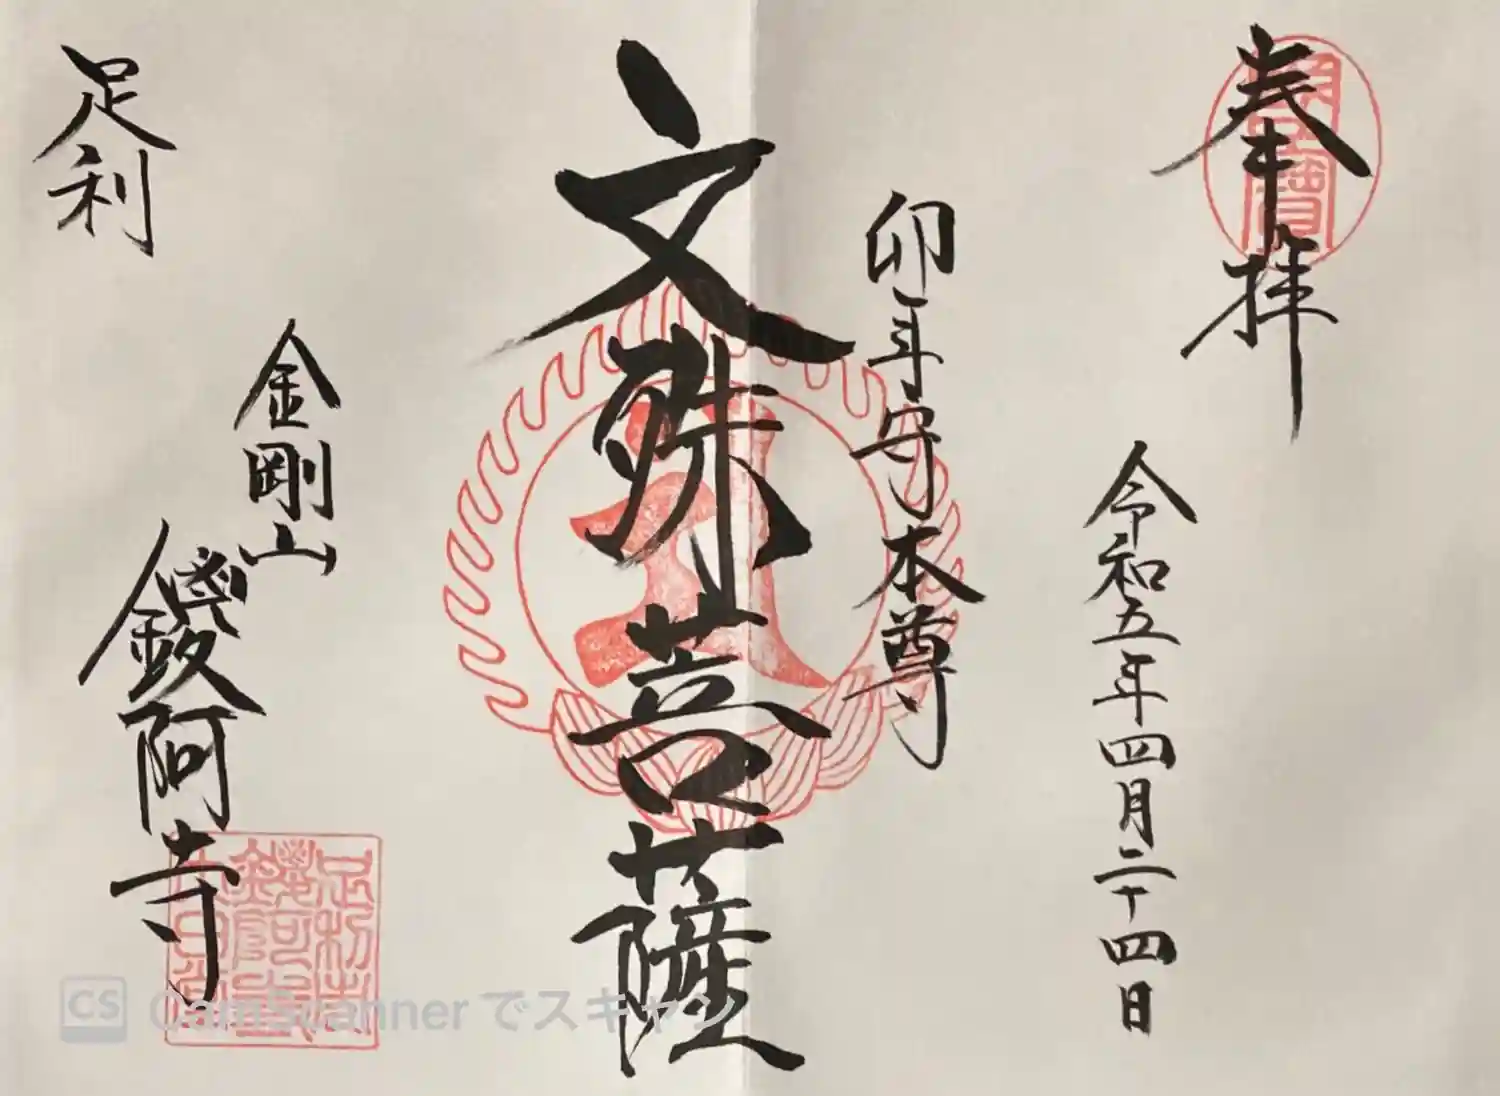 奉拝
令和五年四月二十四日
卯年守本尊
文殊菩薩
足利
金剛山
鑁阿寺
CS CamScanner でスキャン